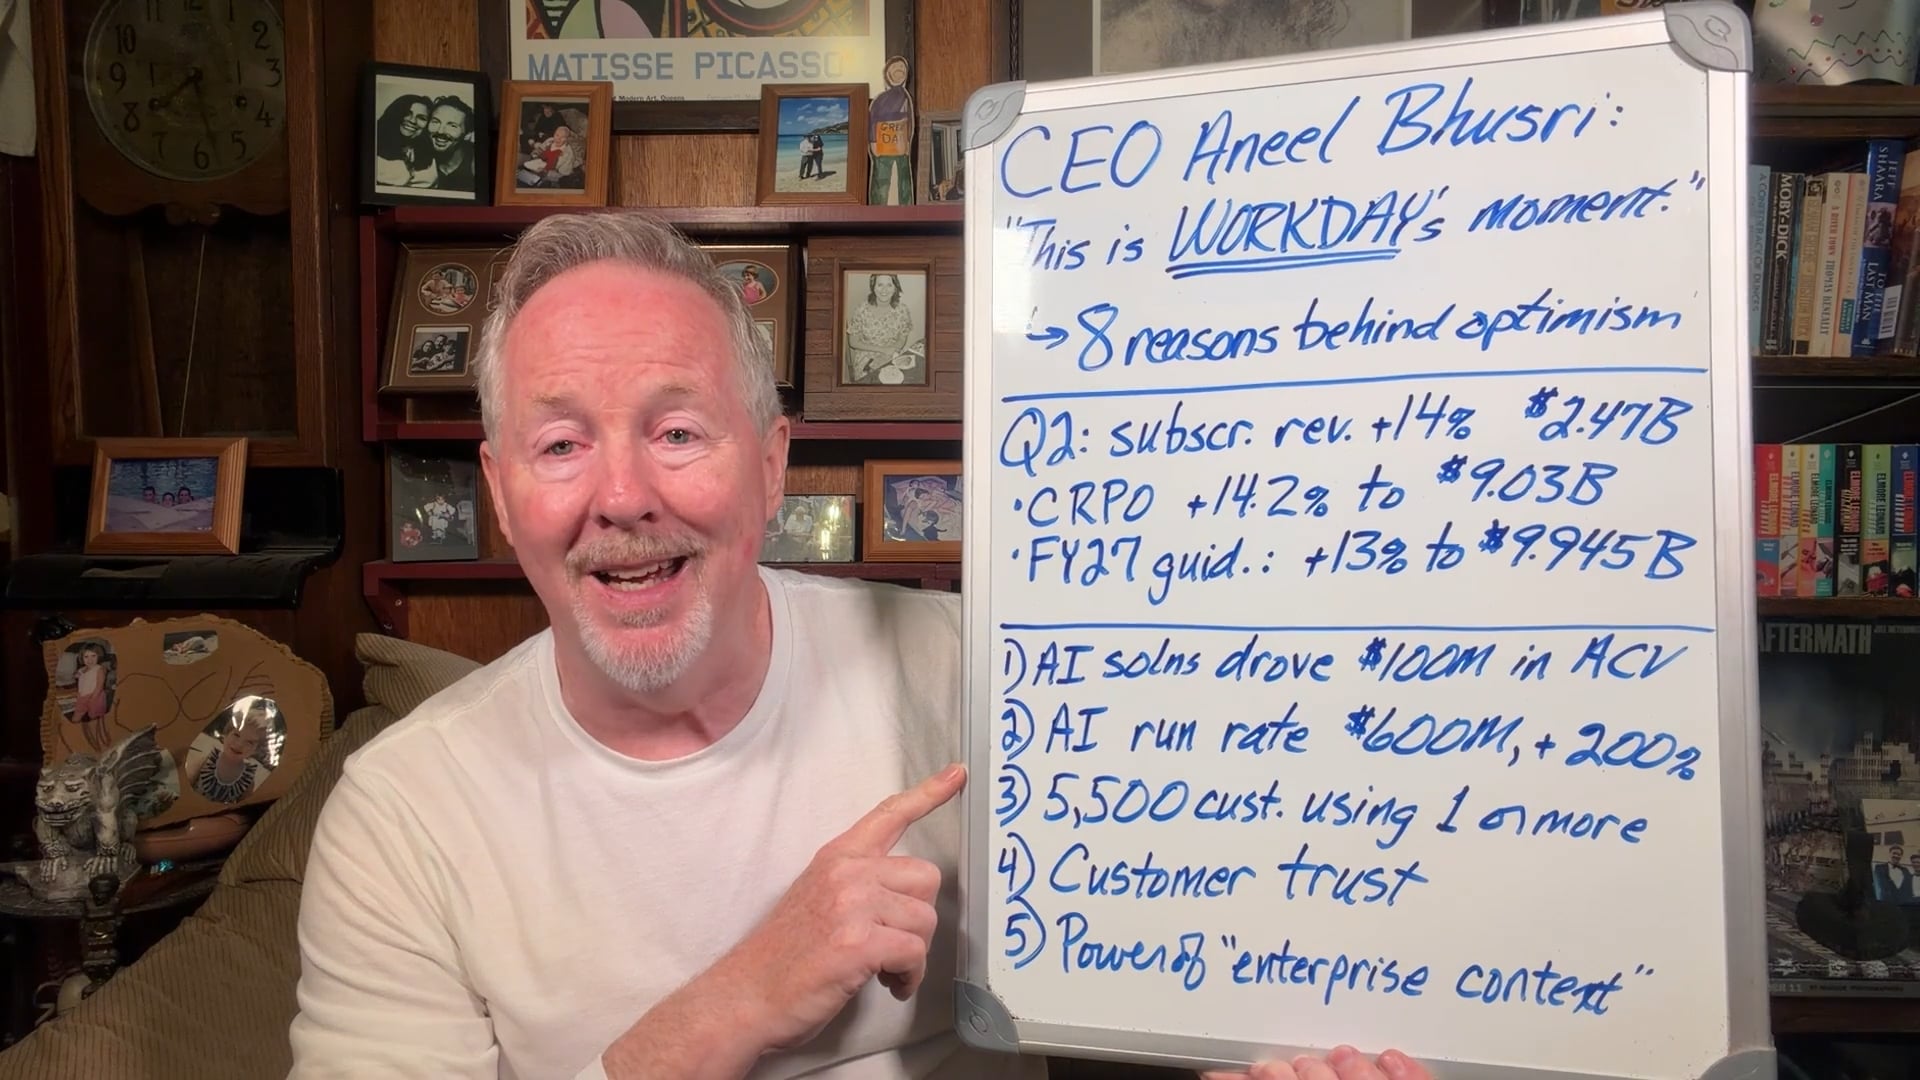 MATISSE PICASSO
Modern Art, Queens
10
9
8
7
6
5
4
3
2
1
CEO Aneel Bhusri:
"This is WORKDAY's moment."
↳ 8 reasons behind optimism
Q2: subscr. rev. +14% $2.47B
·CRPO +14.2% to $9.03B
·FY27 guid.: +13% to $9.945B
1) AI solns drove $100M in ACV
2) AI run rate $600M, +200%
3) 5,500 cust. using 1 or more
4) Customer trust
5) Power of "enterprise context"
MOBY-DICK
JEFF SHAARA
TO THE LAST MAN
ELMORE LEONARD
ELMORE LEONARD
AFTERMATH